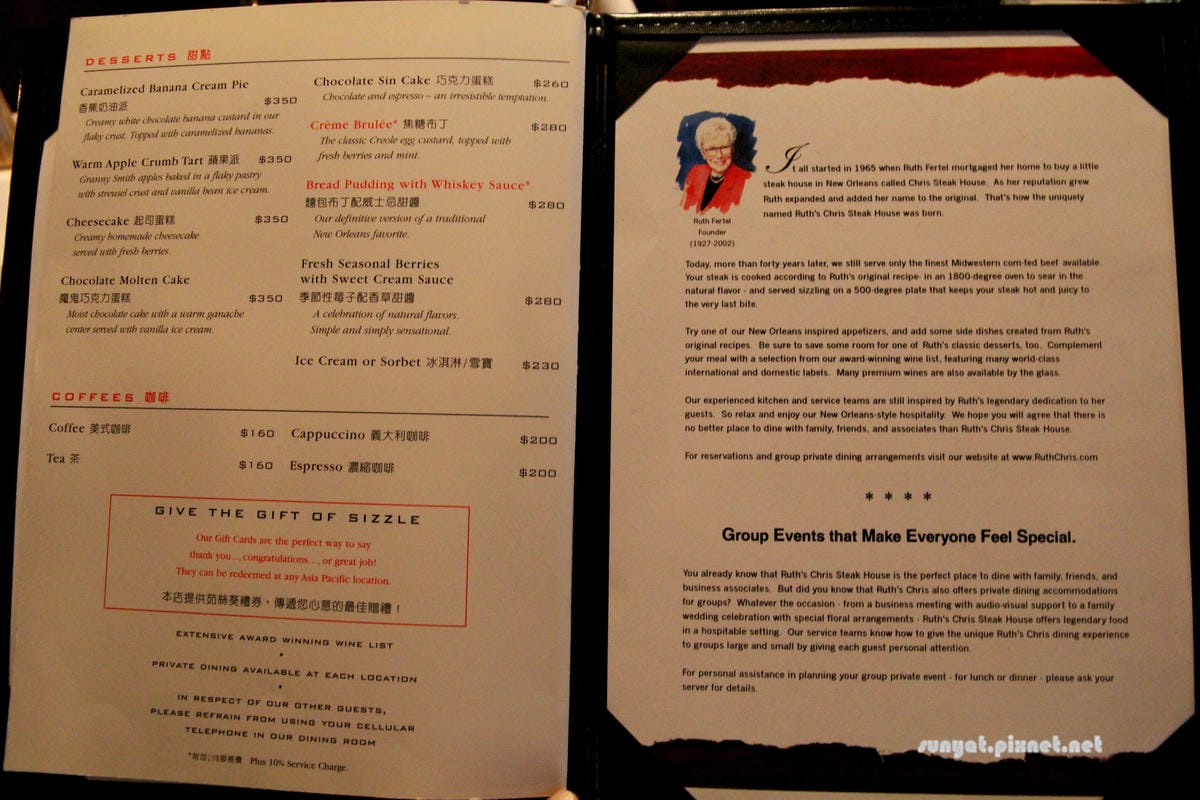 DESSERTS 甜點
Caramelized Banana Cream Pie
香蕉奶油派 $350
Creamy white chocolate banana custard in our
flaky crust. Topped with caramelized bananas.
Warm Apple Crumb Tart 蘋果派 $350
Granny Smith apples baked in a flaky pastry
with streusel crust and vanilla bean ice cream.
Cheesecake 起司蛋糕 $350
Creamy homemade cheesecake
served with fresh berries.
Chocolate Molten Cake
魔鬼巧克力蛋糕 $350
Moist chocolate cake with a warm ganache
center served with vanilla ice cream.
Chocolate Sin Cake 巧克力蛋糕 $260
Chocolate and espresso – an irresistible temptation.
Crème Brulée* 焦糖布丁 $280
The classic Creole egg custard, topped with
fresh berries and mint.
Bread Pudding with Whiskey Sauce*
麵包布丁配威士忌甜醬 $280
Our definitive version of a traditional
New Orleans favorite.
Fresh Seasonal Berries
with Sweet Cream Sauce
季節性莓子配香草甜醬 $280
A celebration of natural flavors.
Simple and simply sensational.
Ice Cream or Sorbet 冰淇淋/雪寶 $230
COFFEES 咖啡
Coffee 美式咖啡 $160
Tea 茶 $160
Cappuccino 義大利咖啡 $200
Espresso 濃縮咖啡 $200
GIVE THE GIFT OF SIZZLE
Our Gift Cards are the perfect way to say
thank you..., congratulations..., or great job!
They can be redeemed at any Asia Pacific location.
本店提供茹絲葵禮券，傳遞您心意的最佳贈禮！
EXTENSIVE AWARD WINNING WINE LIST
•
PRIVATE DINING AVAILABLE AT EACH LOCATION
•
IN RESPECT OF OUR OTHER GUESTS,
PLEASE REFRAIN FROM USING YOUR CELLULAR
TELEPHONE IN OUR DINING ROOM
*附加10%服務費 Plus 10% Service Charge.
Ruth Fertel
Founder
(1927-2002)
It all started in 1965 when Ruth Fertel mortgaged her home to buy a little
steak house in New Orleans called Chris Steak House. As her reputation grew
Ruth expanded and added her name to the original. That's how the uniquely
named Ruth's Chris Steak House was born.
Today, more than forty years later, we still serve only the finest Midwestern corn-fed beef available.
Your steak is cooked according to Ruth's original recipe- in an 1800-degree oven to sear in the
natural flavor - and served sizzling on a 500-degree plate that keeps your steak hot and juicy to
the very last bite.
Try one of our New Orleans inspired appetizers, and add some side dishes created from Ruth's
original recipes. Be sure to save some room for one of Ruth's classic desserts, too. Complement
your meal with a selection from our award-winning wine list, featuring many world-class
international and domestic labels. Many premium wines are also available by the glass.
Our experienced kitchen and service teams are still inspired by Ruth's legendary dedication to her
guests. So relax and enjoy our New Orleans-style hospitality. We hope you will agree that there is
no better place to dine with family, friends, and associates than Ruth's Chris Steak House.
For reservations and group private dining arrangements visit our website at www.RuthChris.com
* * * *
Group Events that Make Everyone Feel Special.
You already know that Ruth's Chris Steak House is the perfect place to dine with family, friends, and
business associates. But did you know that Ruth's Chris also offers private dining accommodations
for groups? Whatever the occasion - from a business meeting with audio-visual support to a family
wedding celebration with special floral arrangements - Ruth's Chris Steak House offers legendary food
in a hospitable setting. Our service teams know how to give the unique Ruth's Chris dining experience
to groups large and small by giving each guest personal attention.
For personal assistance in planning your group private event - for lunch or dinner - please ask your
server for details.
sunyat.pixnet.net